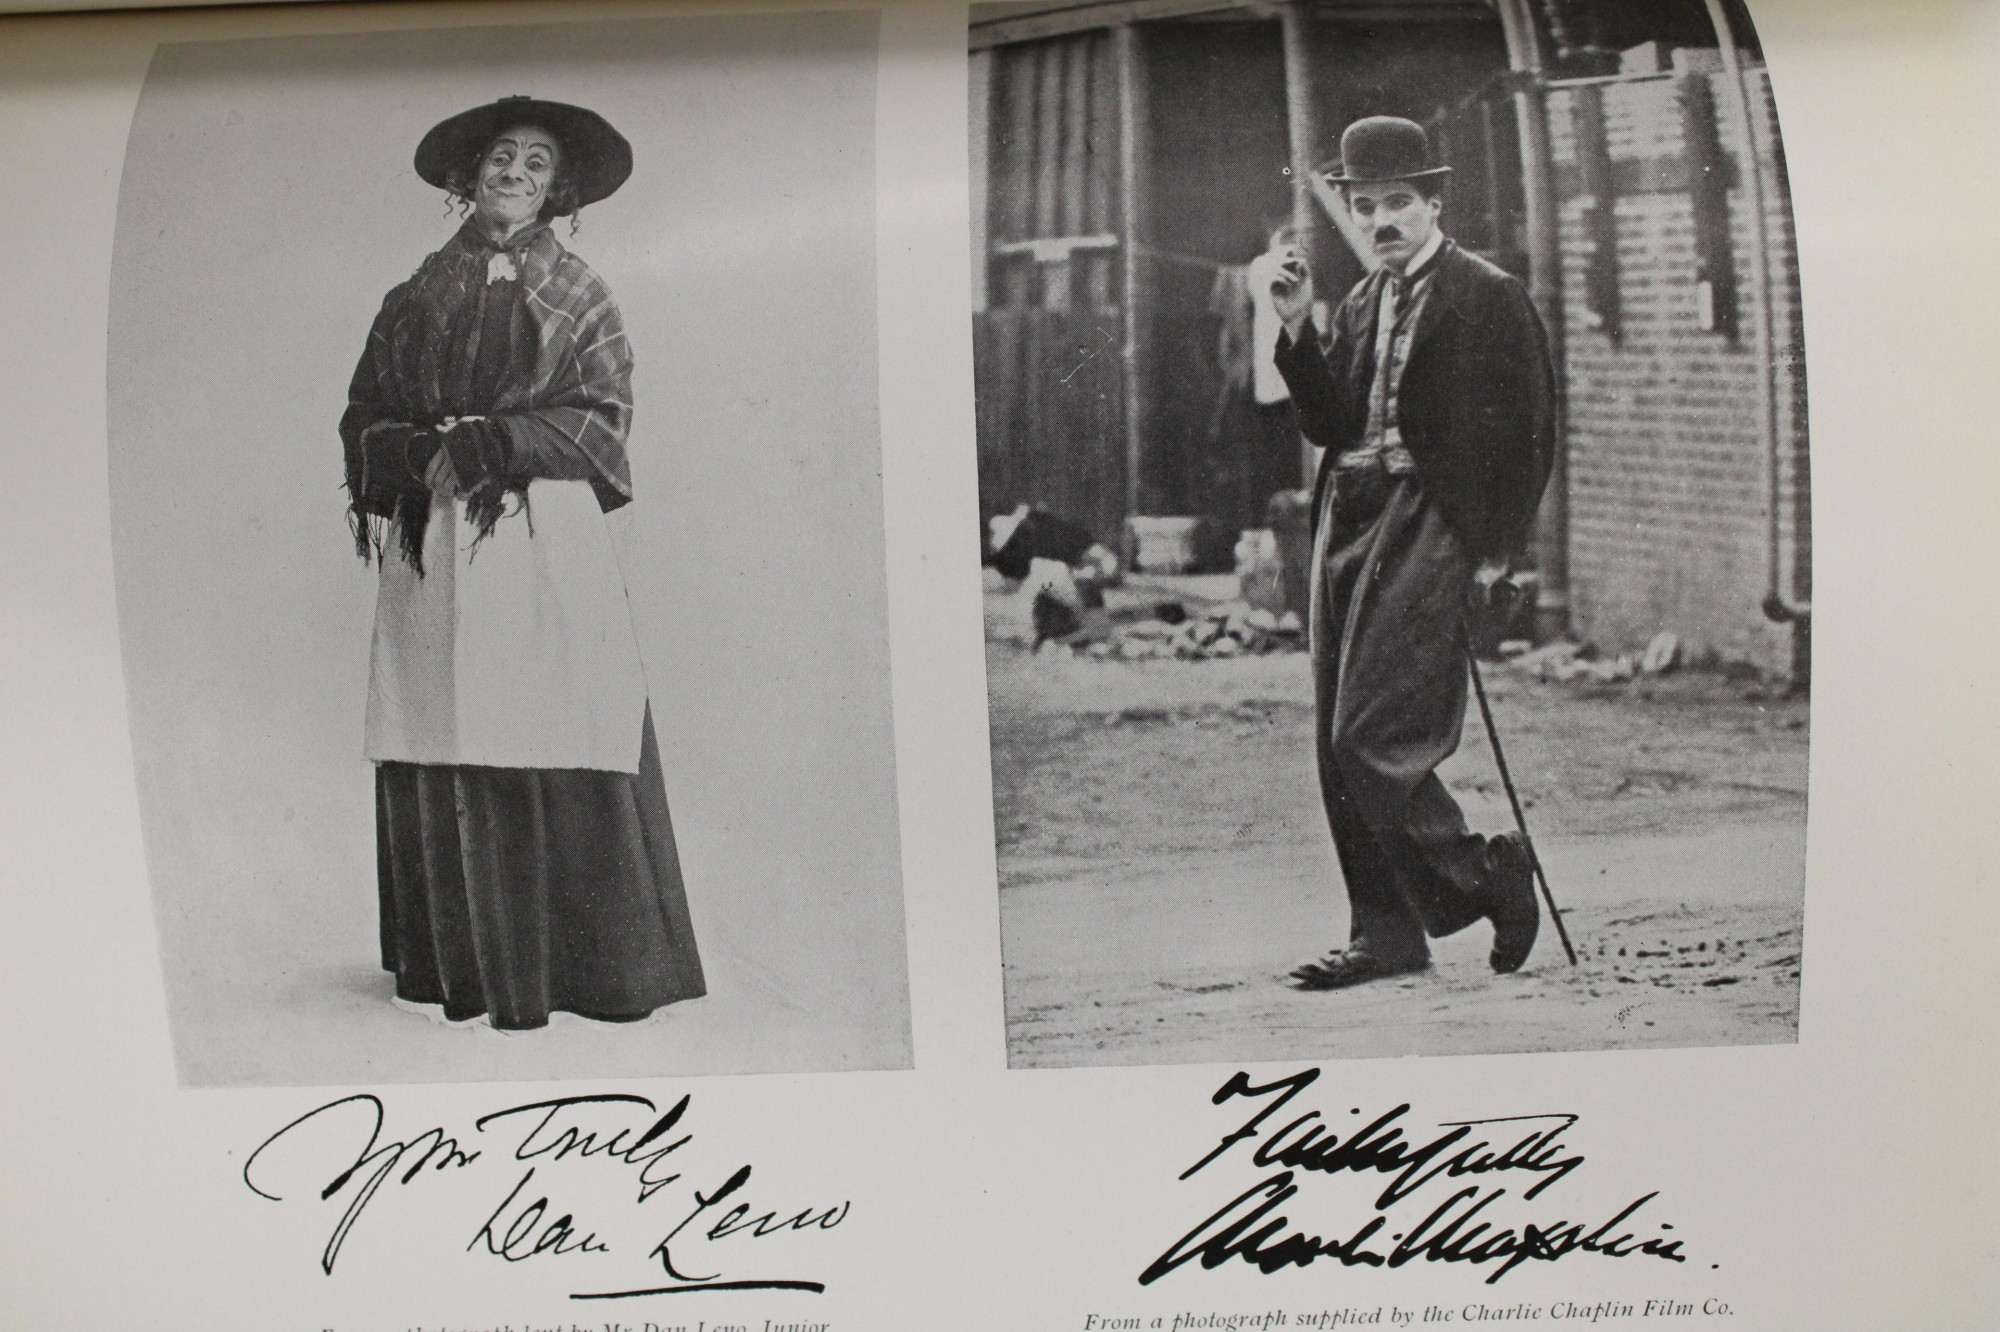 Yours Truly
Dan Leno
From a photograph lent by Mr Dan Leno, Junior
Faithfully
Charlie Chaplin.
From a photograph supplied by the Charlie Chaplin Film Co.